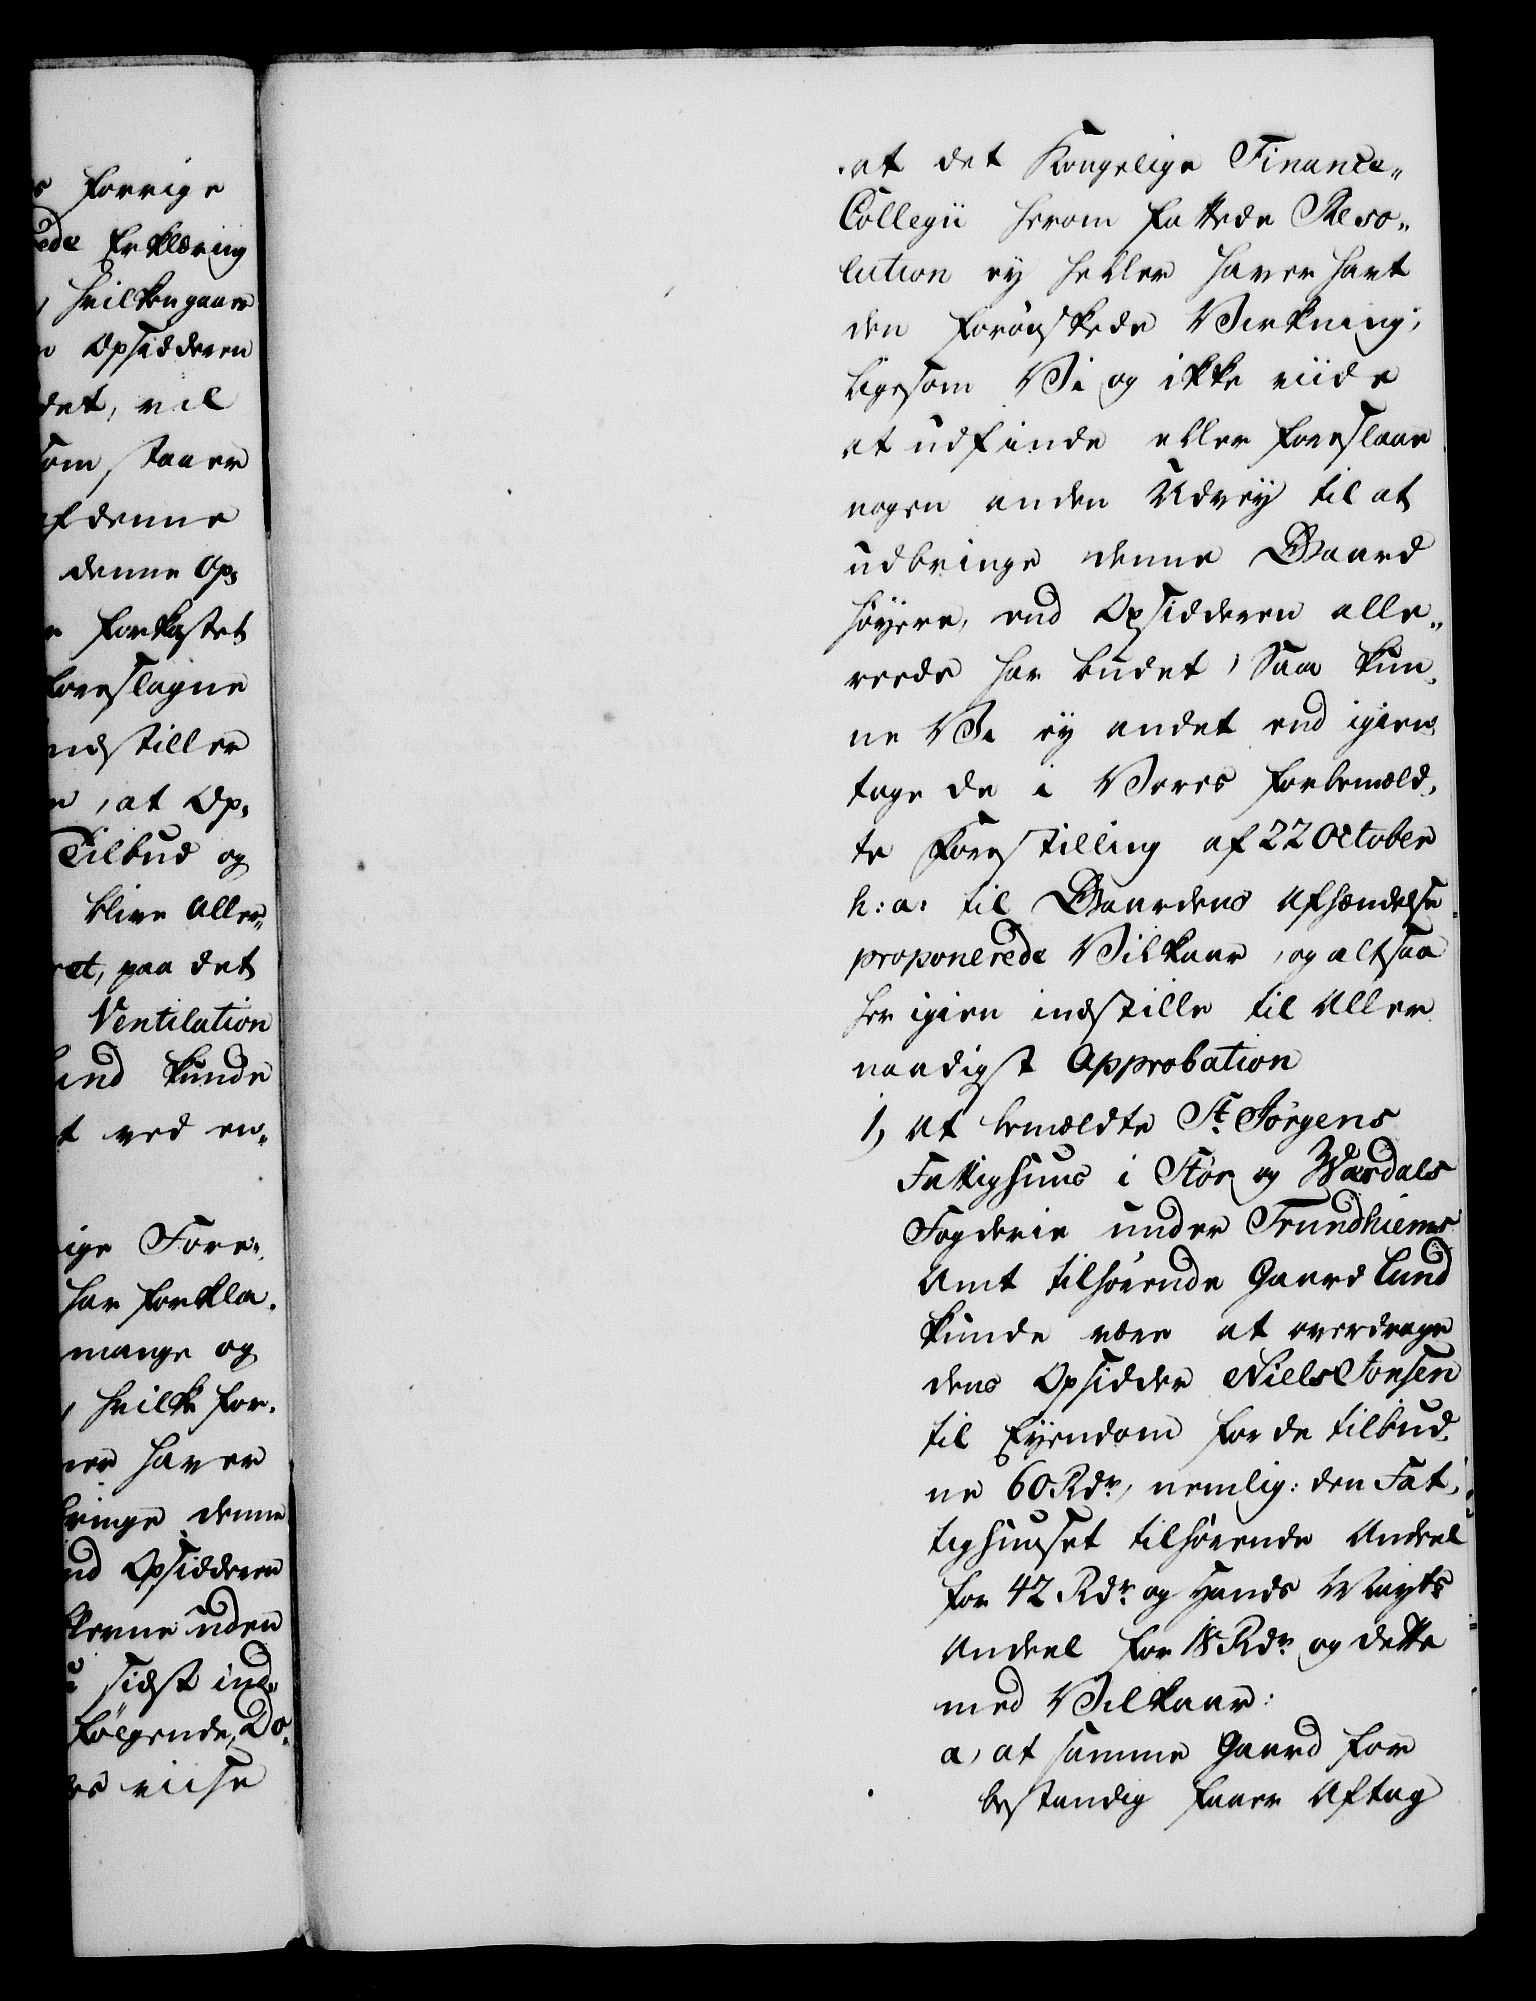 forrige
Erklæring
hvilken gaar
Opsidderen
det, vil
som staaer
af denne
denne Op-
forkastet
foreslagne
indstiller
, at Op-
Tilbud og
blive Aller-
ret, paa det
Ventilation
Lund kunde
ved en-
Fore-
har forkla-
mange og
, hvilke for-
haver
bringe denne
end Opsidderen
uden
sidst ind-
følgende, Do-
viise
at det Kongelige Finance-
Collegii herom fattede Reso-
lution ey heller haver havt
den forønskede Virkning;
ligesom Vi og ikke viide
at udfinde eller foreslaae
nogen anden Udvey til at
udbringe denne Gaard
høyere, end Opsidderen alle-
reede har budet, Saa kun-
ne Vi ey andet end igien-
tage de i Vores forbemeld-
te Forestilling af 22 October
h: a: til Gaardens Afhændelse
proponerede Vilkaar, og altsaa
her igien indstille til Aller
naadigst Approbation
1, At bemældte St. Jørgens
Fattighuus i Stør og Værdals
Fogderie under Trundhiems
Amt tilhørende Gaard Lund
kunde være at overdrage
dens Opsidder Niels Jonsen
til Eyendom for de tilbud-
ne 60 Rdr, nemlig: den Fat-
tighuuset tilhørende Andeel
for 42 Rdr. og Hands Mayts
Andeel for 18 Rdr. og dette
med Vilkaar:
a, at samme Gaard for
bestandig faaer Aftag